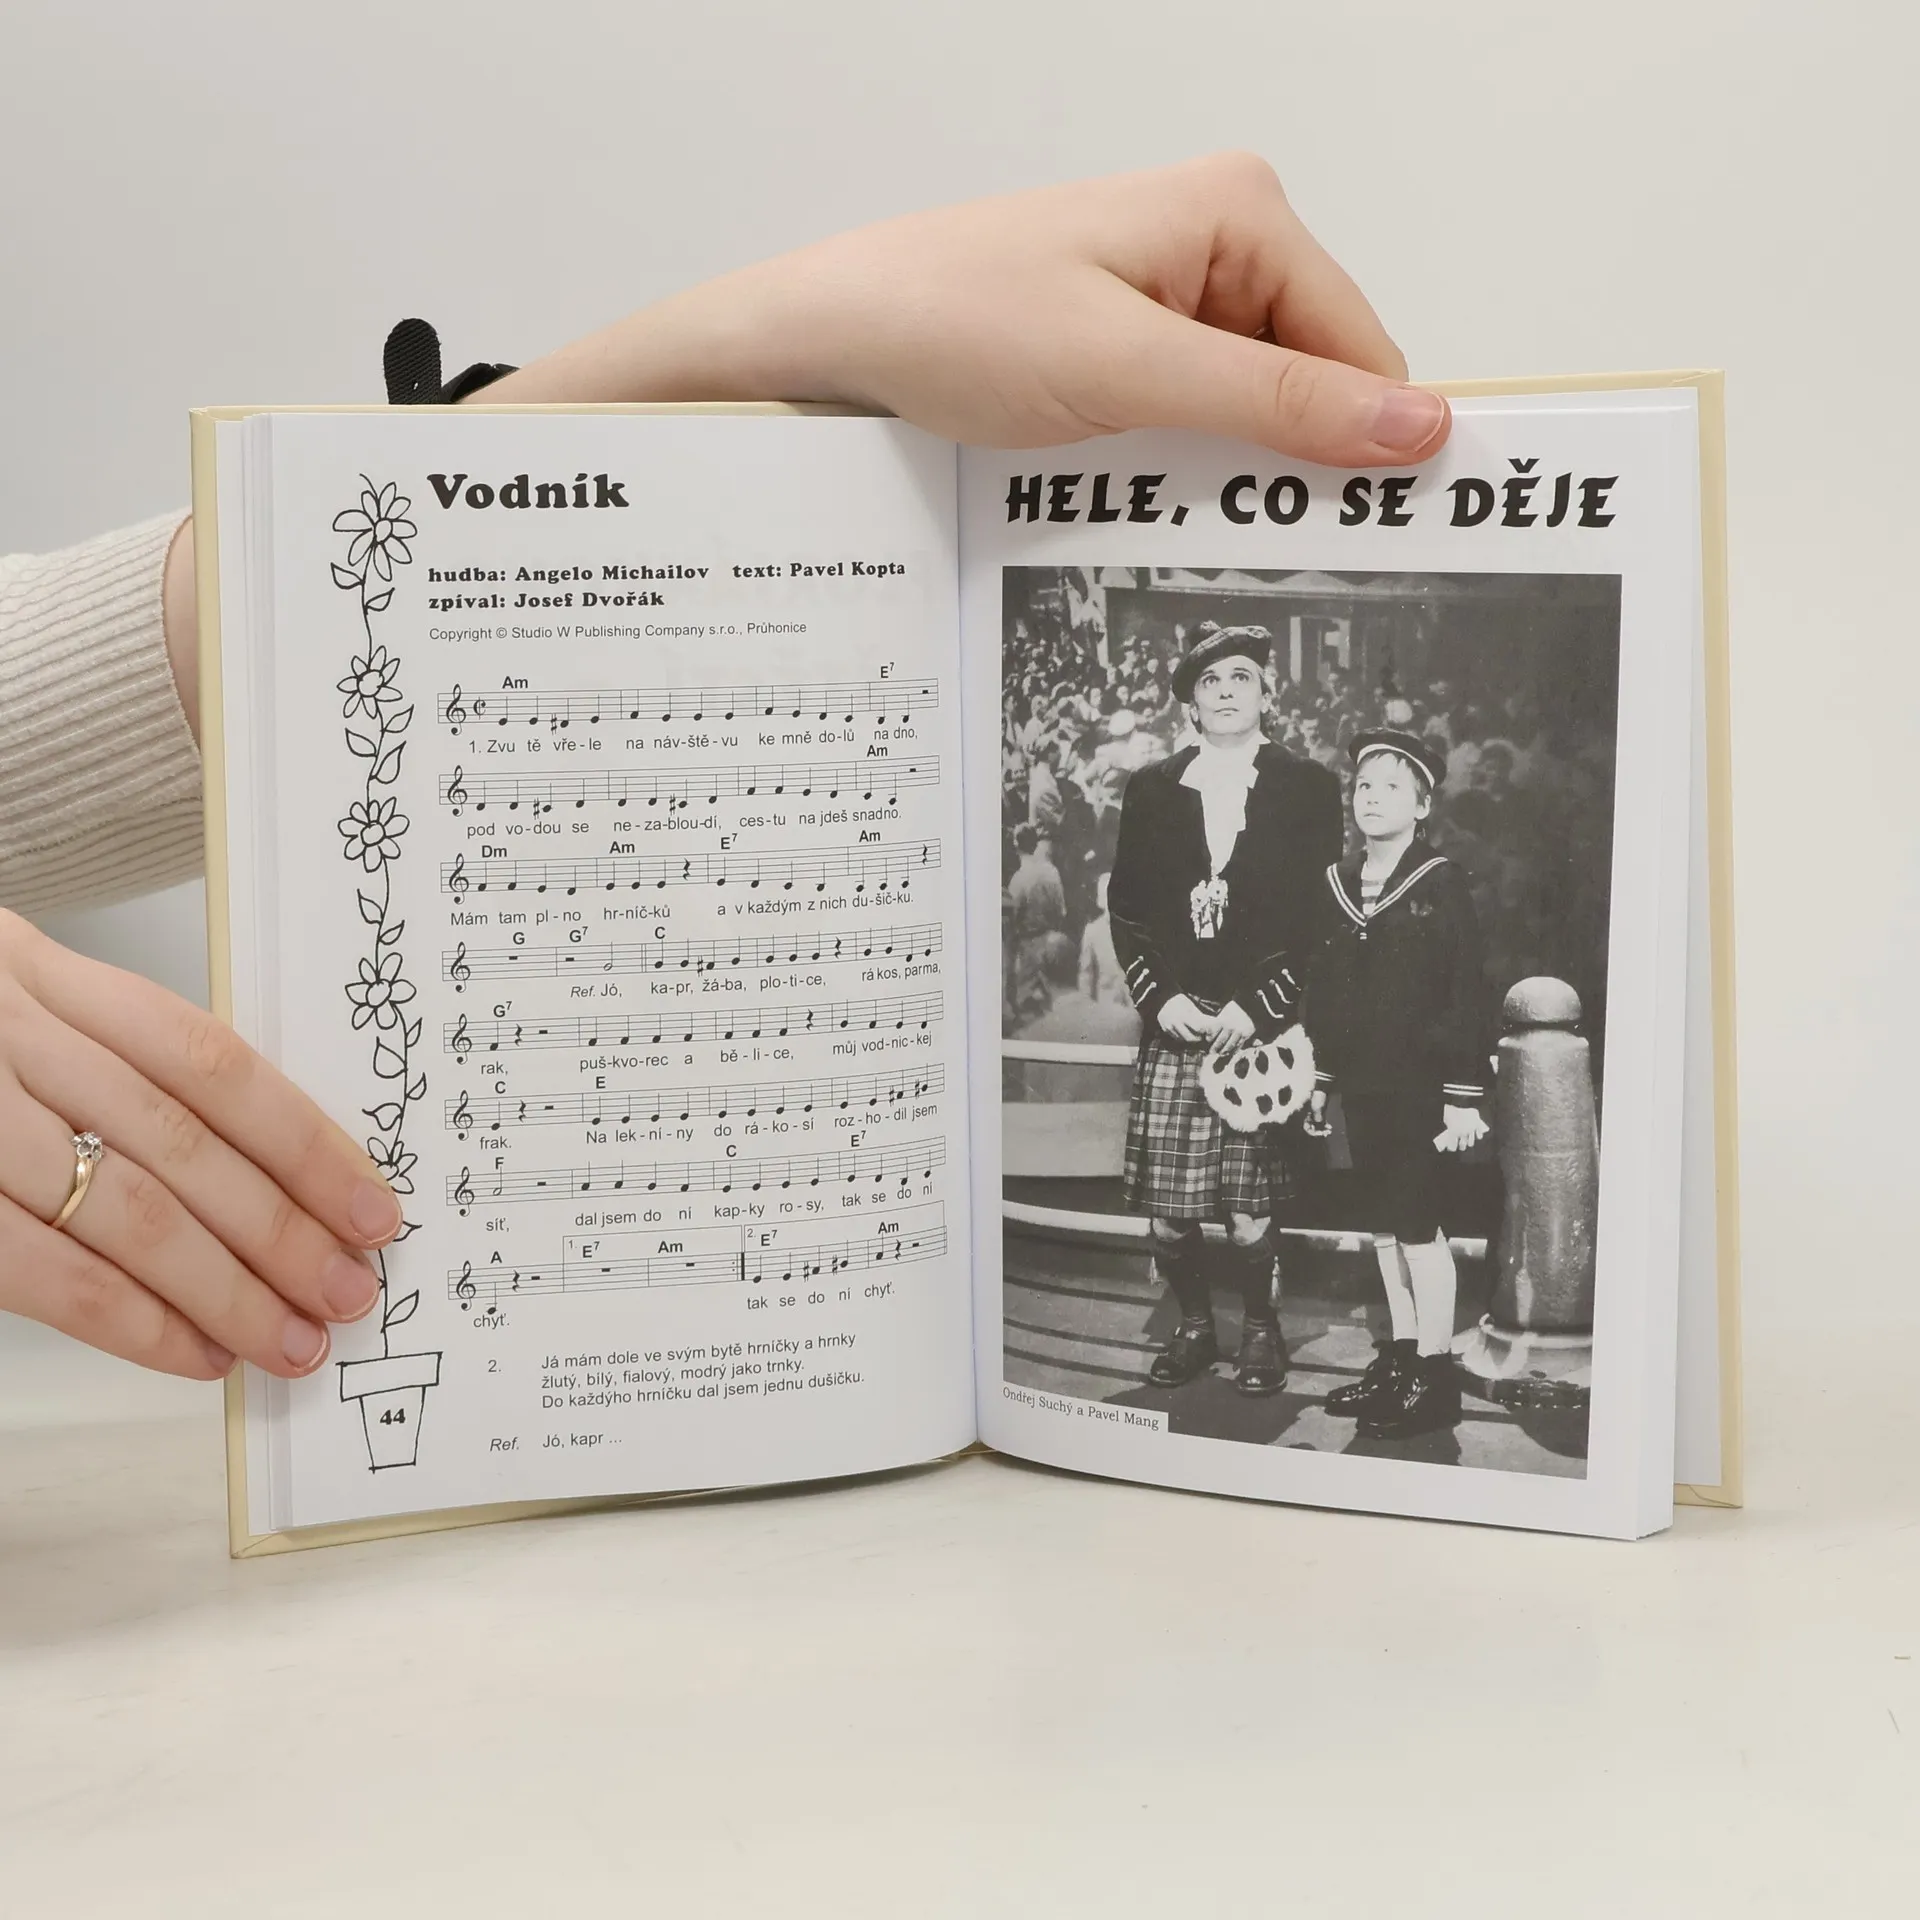 Vodník
hudba: Angelo Michailov text: Pavel Kopta
zpíval: Josef Dvořák
Copyright © Studio W Publishing Company s.r.o., Průhonice
Am E7
1. Zvu tě vře-le na náv-ště-vu ke mně do-lů na dno,
Am
pod vo-dou se ne-za-blou-dí, ces-tu na jdeš snadno.
Dm Am E7 Am
Mám tam pl-no hr-níč-ků a v každým z nich du-šič-ku.
G G7 C
Ref. Jó, ka-pr, žá-ba, plo-ti-ce, rá kos, parma,
G7
rak, puš-kvo-rec a bě-li-ce, můj vod-nic-kej
C E
frak. Na lek-ní-ny do rá-ko-sí roz-ho-dil jsem
F C E7
síť, dal jsem do ní kap-ky ro-sy, tak se do ní
A 1. E7 Am 2. E7 Am
chyť. tak se do ní chyť.
2. Já mám dole ve svým bytě hrníčky a hrnky
žlutý, bílý, fialový, modrý jako trnky.
Do každýho hrníčku dal jsem jednu dušičku.
Ref. Jó, kapr ...
44
HELE, CO SE DĚJE
Ondřej Suchý a Pavel Mang